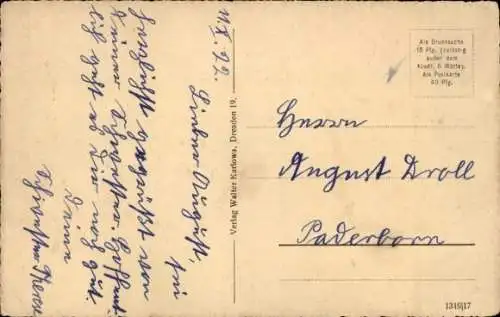 11.I.22.
Lieber August, sei
herzlichst gegrüßt von
Deiner Schwester. Hoffentl.
geht es Dir noch gut.
Deine
Schwester
Verlag Walter Karlowa, Dresden 19.
Als Drucksache
15 Pfg. (zulässig
außer dem
Kopf 5 Worte),
Als Postkarte
40 Pfg.
Herrn
August Droll
Paderborn
1319|17